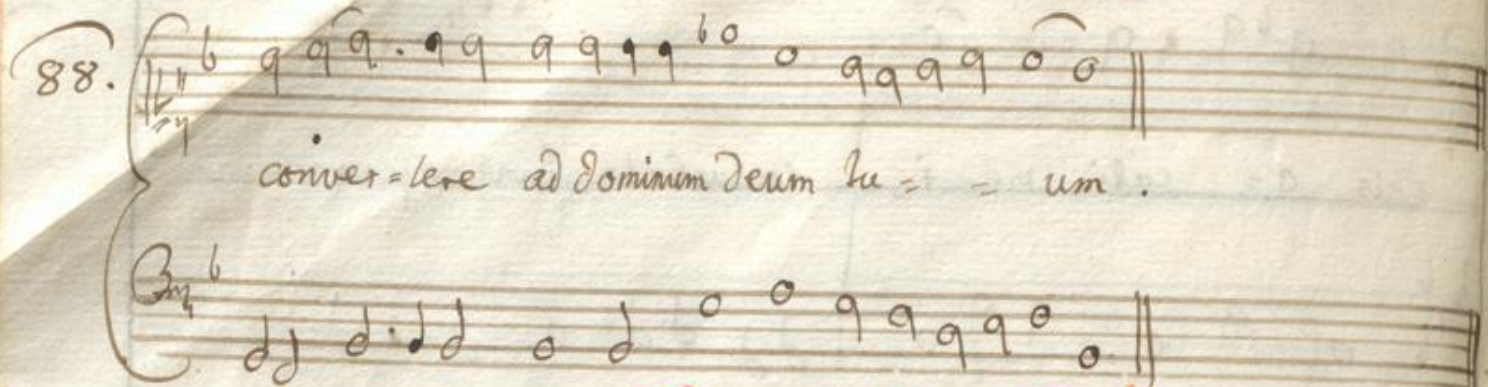 88.
conver=tere ad dominum deum tu= = um .